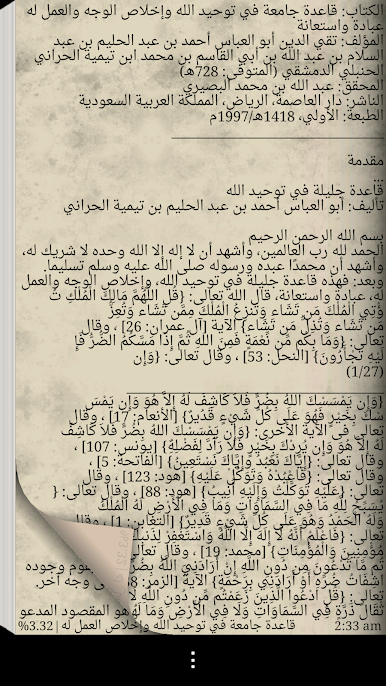 الكتاب: قاعدة جامعة في توحيد الله وإخلاص الوجه والعمل له
عبادة واستعانة
المؤلف: تقي الدين أبو العباس أحمد بن عبد الحليم بن عبد
السلام بن عبد الله بن أبي القاسم بن محمد ابن تيمية الحراني
الحنبلي الدمشقي (المتوفى: 728هـ)
المحقق: عبد الله بن محمد البصيري
الناشر: دار العاصمة، الرياض، المملكة العربية السعودية
الطبعة: الأولي، 1418هـ/1997م
مقدمة
...
قاعدة جليلة في توحيد الله
تأليف: أبو العباس أحمد بن عبد الحليم بن تيمية الحراني
بسم الله الرحمن الرحيم
الحمد لله رب العالمين، وأشهد أن لا إله إلا الله وحده لا شريك له،
وأشهد أن محمدًا عبده ورسوله صلى الله عليه وسلم تسليما.
وبعد: فهذه قاعدة جليلة في توحيد الله، وإخلاص الوجه والعمل
له، عبادة واستعانة، قال الله تعالى: {قُلِ اللَّهُمَّ مَالِكَ الْمُلْكِ تُ
ؤْتِي الْمُلْكَ مَن تَشَاء وَتَنزِعُ الْمُلْكَ مِمَّن تَشَاء وَتُعِزُّ
مَن تَشَاء وَتُذِلُّ مَن تَشَاء} الآية [آل عمران: 26] ، وقال
تعالى: {وَمَا بِكُم مِّن نِّعْمَةٍ فَمِنَ اللَّهِ ثُمَّ إِذَا مَسَّكُمُ الضُّرُّ فَإِ
لَيْهِ تَجْأَرُونَ} [النحل: 53] ، وقال تعالى: {وَإِن
(1/27)
{وَإِن يَمْسَسْكَ اللَّهُ بِضُرٍّ فَلاَ كَاشِفَ لَهُ إِلاَّ هُوَ وَإِن يَمْسَ
سْكَ بِخَيْرٍ فَهُوَ عَلَى كُلِّ شَيْءٍ قَدُيرٌ} [الأنعام: 17] ، وقال
تعالى في الآية الأخرى: {وَإِن يَمْسَسْكَ اللَّهُ بِضُرٍّ فَلاَ كَاشِفَ
لَهُ إِلاَّ هُوَ وَإِن يُرِدْكَ بِخَيْرٍ فَلاَ رَآدَّ لِفَضْلِهِ} [يونس: 107] ،
وقال تعالى: {إِيَّاكَ نَعْبُدُ وإِيَّاكَ نَسْتَعِينُ} [الفاتحة: 5] ،
وقال تعالى: {فَاعْبُدْهُ وَتَوَكَّلْ عَلَيْهِ} [هود: 123] ، وقال
تعالى: {عَلَيْهِ تَوَكَّلْتُ وَإِلَيْهِ أُنِيبُ} [هود: 88] ، وقال تعالى: {
يُسَبِّحُ لِلَّهِ مَا فِي السَّمَاوَاتِ وَمَا فِي الْأَرْضِ لَهُ الْمُلْكُ
وَلَهُ الْحَمْدُ وَهُوَ عَلَى كُلِّ شَيْءٍ قَدِيرٌ} [التغابن: 1] ، وقال
تعالى: {فَاعْلَمْ أَنَّهُ لَا إِلَهَ إِلَّا اللَّهُ وَاسْتَغْفِرْ لِذَنبِكَ
مُؤْمِنِينَ وَالْمُؤْمِنَاتِ} [محمد: 19] ، وقال تعالى
تُم مَّا تَدْعُونَ مِن دُونِ اللَّهِ إِنْ أَرَادَنِيَ اللَّهُ بِضُرٍّ
اشِفَاتُ ضُرِّهِ أَوْ أَرَادَنِي بِرَحْمَةٍ} الآية [الزمر:
تعالى: {قُلِ ادْعُوا الَّذِينَ زَعَمْتُم مِّن دُونِ اللَّهِ لَا
ثْقَالَ ذَرَّةٍ فِي السَّمَاوَاتِ وَلَا فِي الْأَرْضِ وَمَا لَ
2:33 am قاعدة جامعة في توحيد الله وإخلاص العمل له | 3.32%